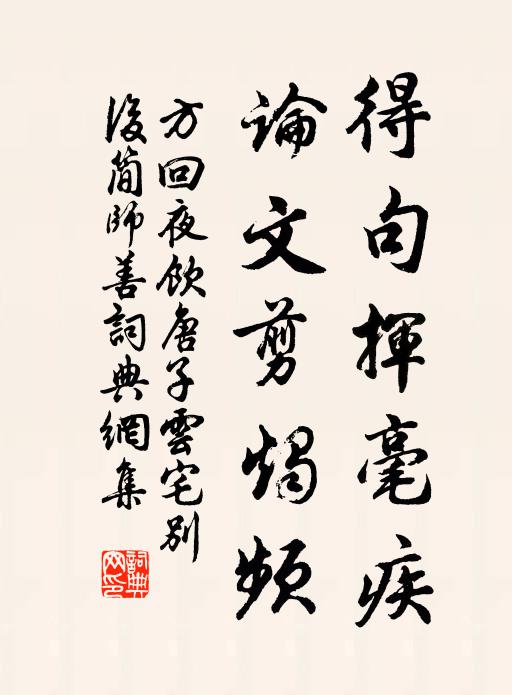 得句揮毫疾
論文剪燭頻
方回夜飲唐子雲宅別
後簡師善詞典網集
詞典网印